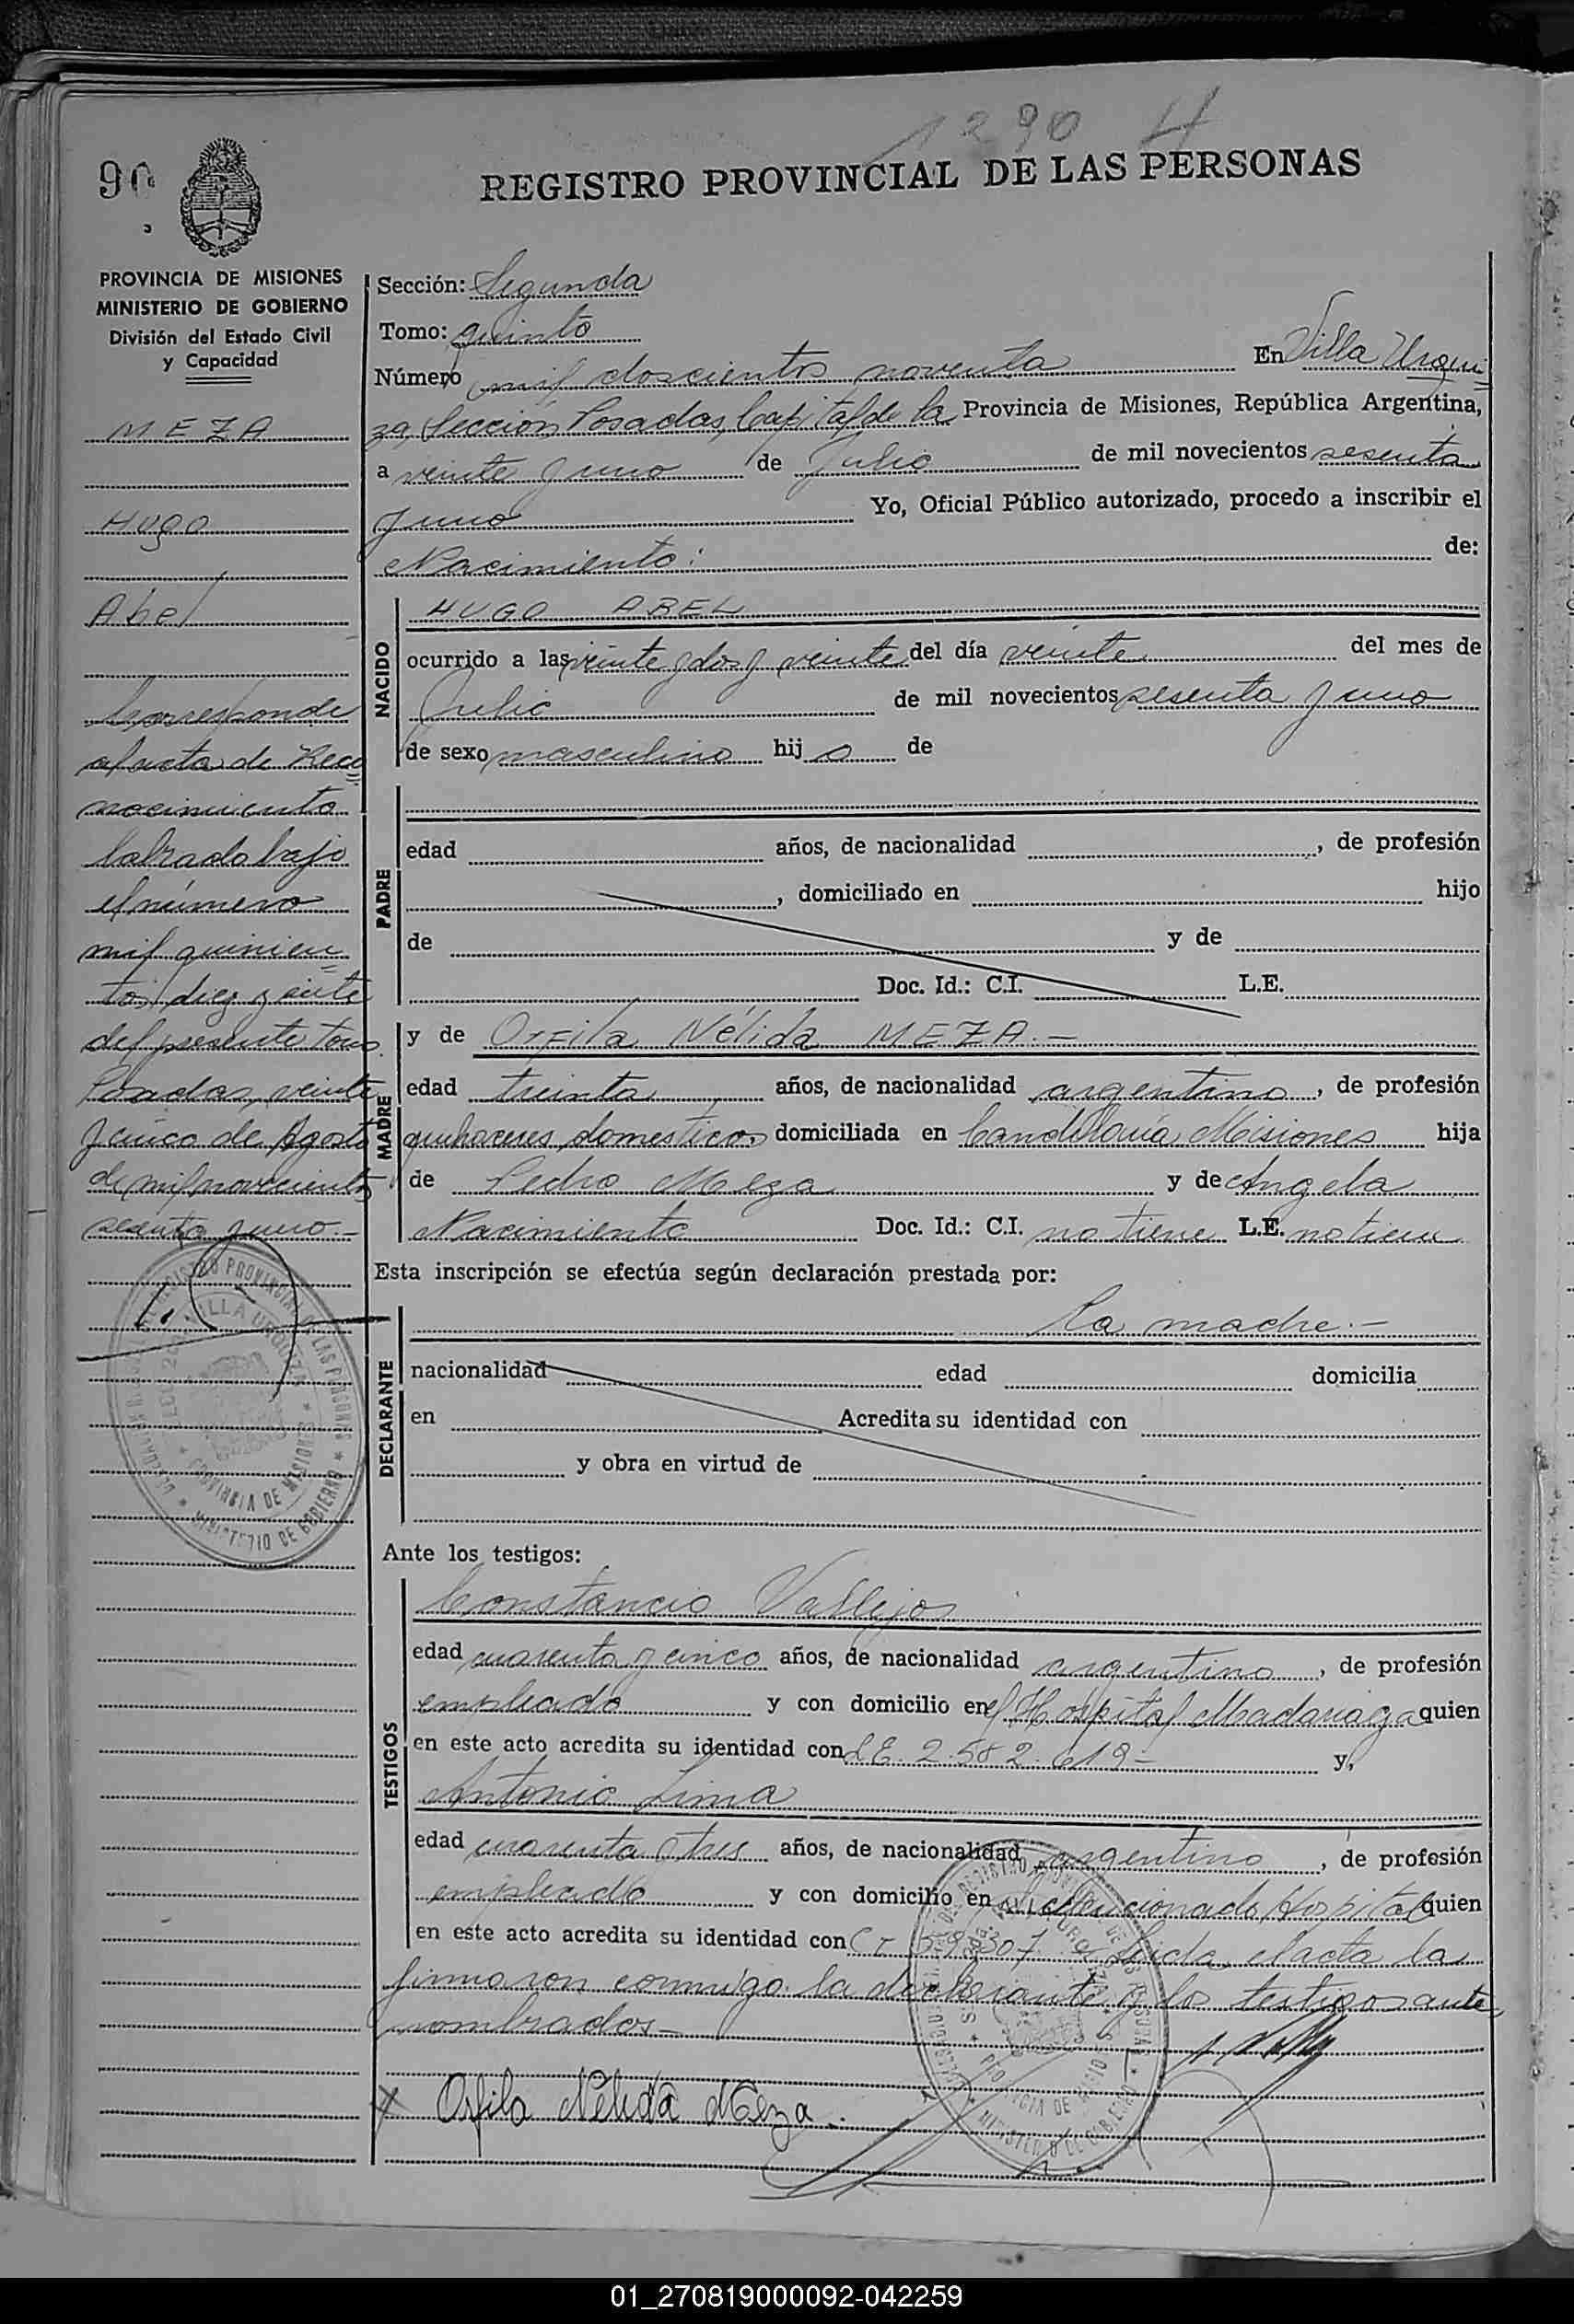 1290 H
90
REGISTRO PROVINCIAL DE LAS PERSONAS
PROVINCIA DE MISIONES
MINISTERIO DE GOBIERNO
División del Estado Civil
y Capacidad
MEZA
Hugo
Abel
Corresponde
al acta de Reco
nocimiento
labrado bajo
el número
mil quinien
tos diez y siete
del presente tomo.
Posadas, veinte
y cinco de Agosto
de mil novecientos
sesenta y uno.-
Sección: Segunda
Tomo: quinto
Número mil doscientos noventa En Villa Urqui
za, Sección Posadas, Capital de la Provincia de Misiones, República Argentina,
a veinte y uno de Julio de mil novecientos sesenta
y uno Yo, Oficial Público autorizado, procedo a inscribir el
Nacimiento: de:
NACIDO
HUGO ABEL
ocurrido a las veinte y dos y veinte del día veinte del mes de
Julio de mil novecientos sesenta y uno
de sexo masculino hij o de
PADRE
edad años, de nacionalidad , de profesión
, domiciliado en hijo
de y de
Doc. Id.: C.I. L.E.
MADRE
y de Orfila Nélida MEZA.-
edad treinta años, de nacionalidad argentina, de profesión
quehaceres domesticos domiciliada en Candelaria Misiones hija
de Pedro Meza y de Angela
Nacimiento Doc. Id.: C.I. no tiene L.E. no tiene
Esta inscripción se efectúa según declaración prestada por:
DECLARANTE
La madre.-
nacionalidad edad domicilia
en Acredita su identidad con
y obra en virtud de
Ante los testigos:
TESTIGOS
Constancio Vallejos
edad cuarenta y cinco años, de nacionalidad argentino, de profesión
empleado y con domicilio en el Hospital Madariaga quien
en este acto acredita su identidad con LE. 2.582.619- y,
Antonio Lima
edad cuarenta y tres años, de nacionalidad argentino, de profesión
empleado y con domicilio en el mencionado Hospital quien
en este acto acredita su identidad con Leida el acta la
firmaron conmigo la declarante y los testigos ante
nombrados-
x Orfila Nélida Meza.
01_270819000092-042259